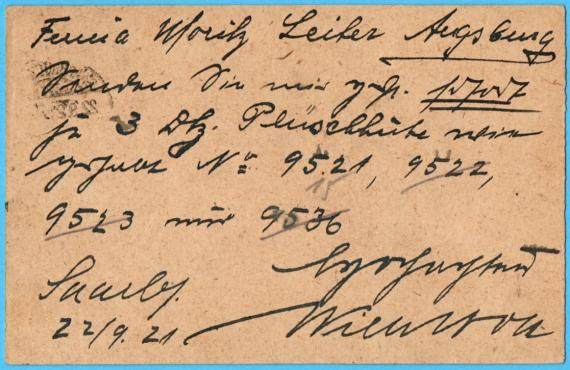 Firma Moritz Leiter Augsburg
Senden Sie mir gefl. sofort
je 3 Dtz. Plüschhüte wie
gehabt No 9521, 9522,
15
9523 und 9536
Hochachtend
Saarbr.
22/9.21